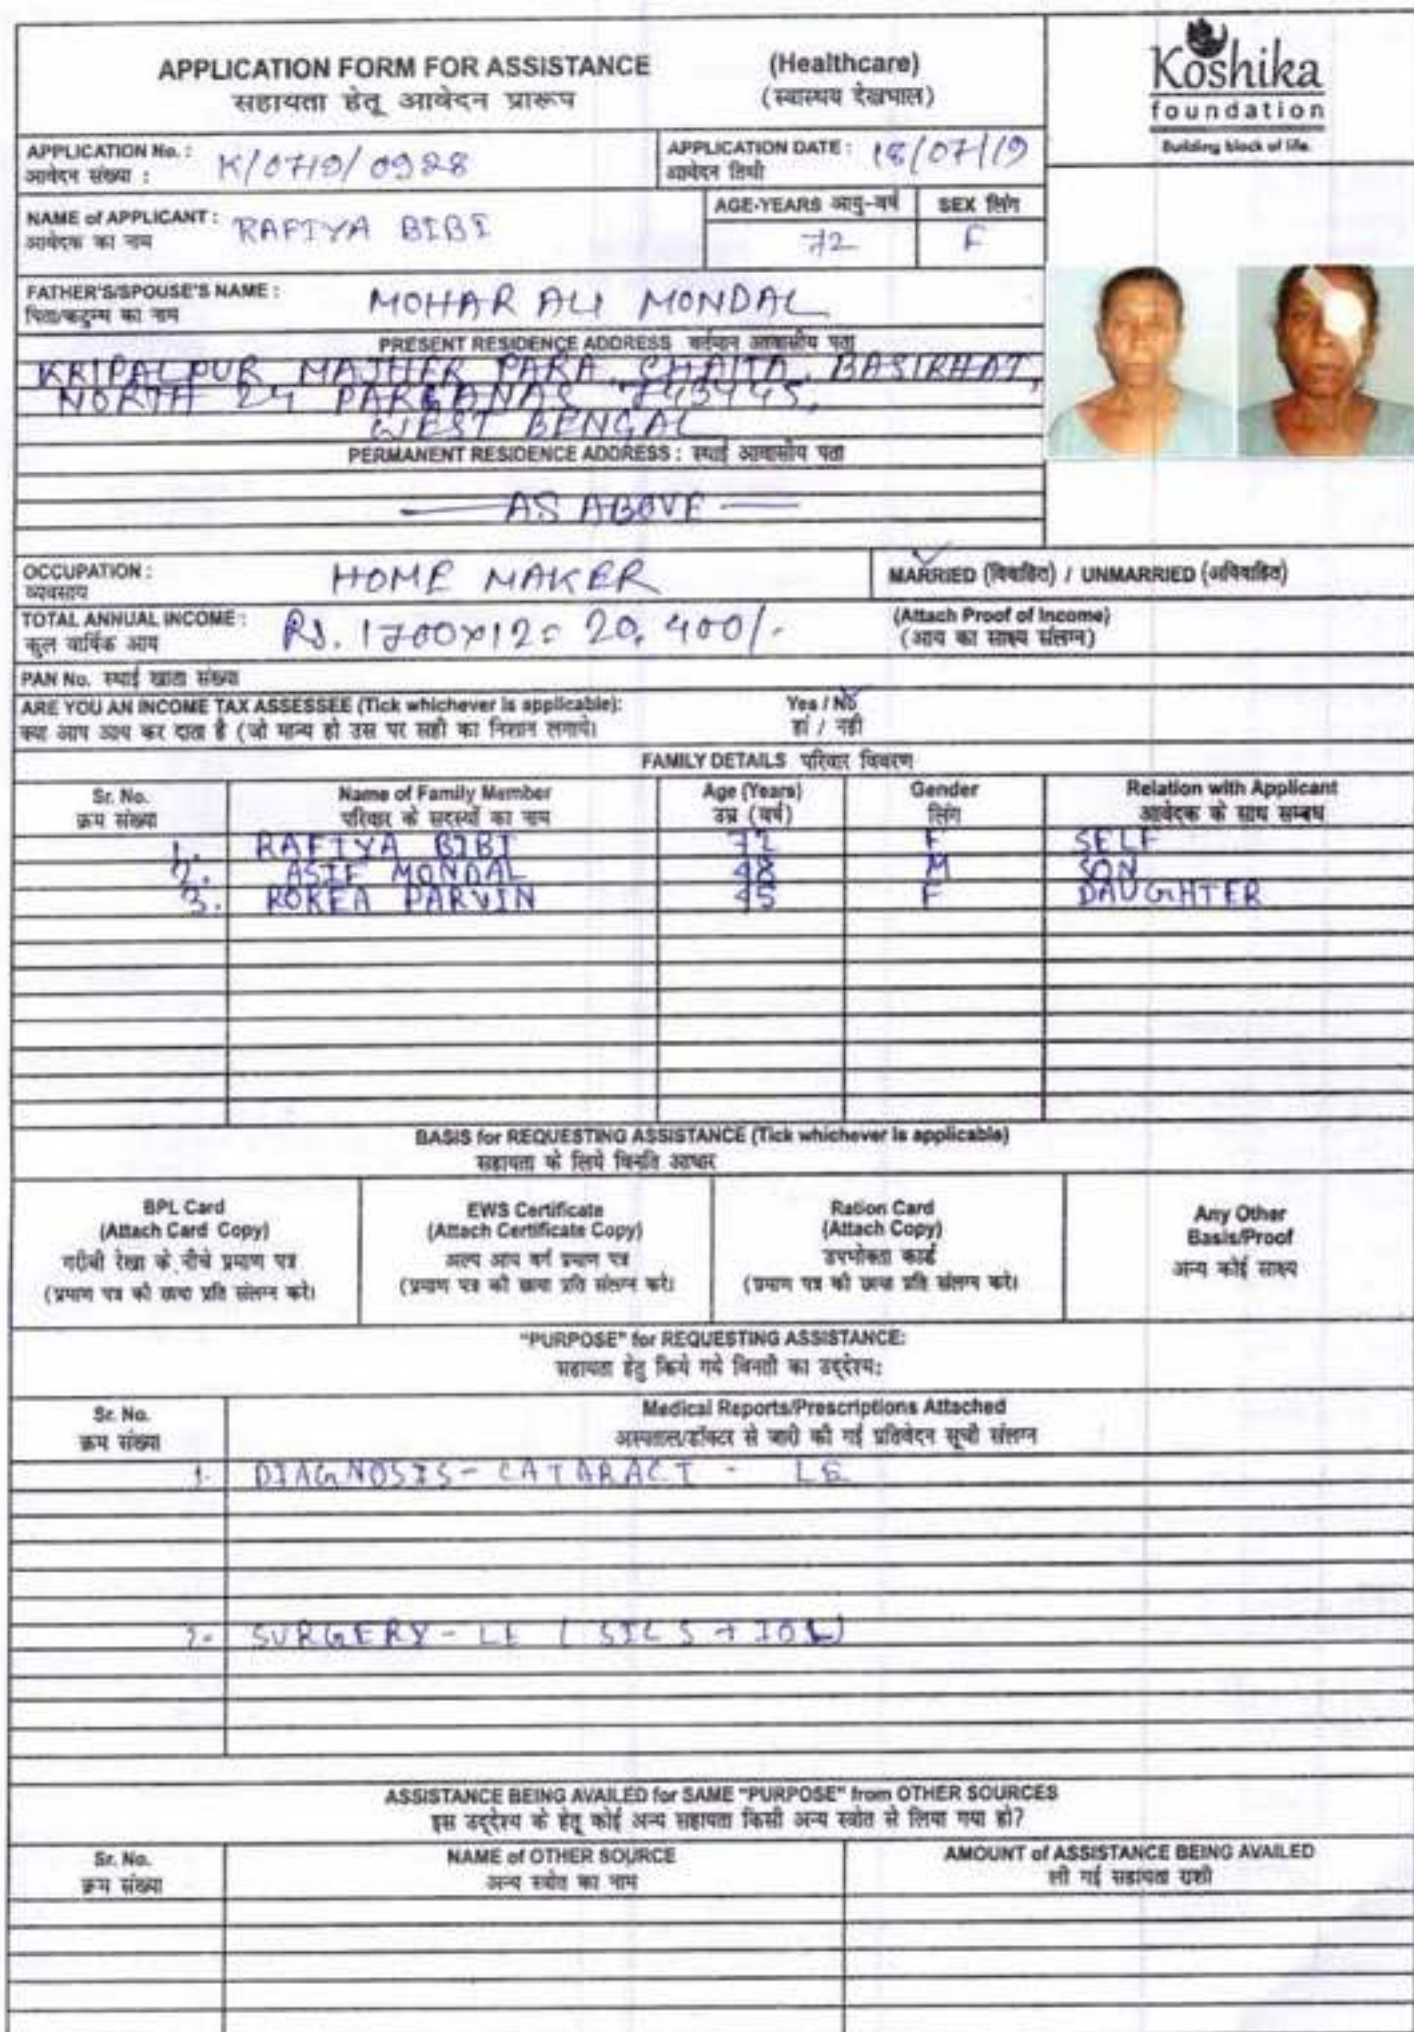 APPLICATION FORM FOR ASSISTANCE (Healthcare)
सहायता हेतू आवेदन प्रारूप (स्वास्थय देखभाल)
Koshika
foundation
Building block of life.
APPLICATION No. : K/0719/0928
आवेदन संख्या :
APPLICATION DATE : 18/07/19
आवेदन तिथी
NAME of APPLICANT : RAFIYA BIBI
आवेदक का नाम
AGE-YEARS आयु-वर्ष SEX लिंग
72 F
FATHER'S/SPOUSE'S NAME : MOHAR ALI MONDAL
पिता/कटुम्ब का नाम
PRESENT RESIDENCE ADDRESS वर्तमान आवासीय पता
KRIPALPUR, MAJHER PARA, CHAITA, BASIRHAT,
NORTH 24 PARGANAS 743445,
WEST BENGAL
PERMANENT RESIDENCE ADDRESS : स्थाई आवासीय पता
AS ABOVE
OCCUPATION : HOME MAKER
व्यवसाय
MARRIED (विवाहित) / UNMARRIED (अविवाहित)
TOTAL ANNUAL INCOME : Rs. 1700x12= 20,400/-
कुल वार्षिक आय
(Attach Proof of Income)
(आय का साक्ष्य संलग्न)
PAN No. स्थाई खाता संख्या
ARE YOU AN INCOME TAX ASSESSEE (Tick whichever is applicable): Yes / No
क्या आप आय कर दाता है (जो मान्य हो उस पर सही का निशान लगाये। हां / नही
FAMILY DETAILS परिवार विवरण
Sr. No. Name of Family Member Age (Years) Gender Relation with Applicant
क्रम संख्या परिवार के सदस्यों का नाम उम्र (वर्ष) लिंग आवेदक के साथ सम्बध
1. RAFIYA BIBI 72 F SELF
2. ASIF MONDAL 48 M SON
3. ROKEA PARVIN 45 F DAUGHTER
BASIS for REQUESTING ASSISTANCE (Tick whichever is applicable)
सहायता के लिये विनति आधार
BPL Card
(Attach Card Copy)
गरीबी रेखा के नीचे प्रमाण पत्र
(प्रमाण पत्र की छाया प्रति संलग्न करे।
EWS Certificate
(Attach Certificate Copy)
अल्प आय वर्ग प्रमाण पत्र
(प्रमाण पत्र की छाया प्रति संलग्न करे।
Ration Card
(Attach Copy)
उपभोक्ता कार्ड
(प्रमाण पत्र की छाया प्रति संलग्न करे।
Any Other
Basis/Proof
अन्य कोई साक्ष्य
"PURPOSE" for REQUESTING ASSISTANCE:
सहायता हेतु किये गये विनती का उद्देश्य:
Sr. No. Medical Reports/Prescriptions Attached
क्रम संख्या अस्पताल/डॉक्टर से जारी की गई प्रतिवेदन सूची संलग्न
1. DIAGNOSIS - CATARACT - LE
2. SURGERY - LE (SICS + IOL)
ASSISTANCE BEING AVAILED for SAME "PURPOSE" from OTHER SOURCES
इस उद्देश्य के हेतू कोई अन्य सहायता किसी अन्य स्त्रोत से लिया गया हो?
Sr. No. NAME of OTHER SOURCE AMOUNT of ASSISTANCE BEING AVAILED
क्रम संख्या अन्य स्त्रोत का नाम ली गई सहायता राशी